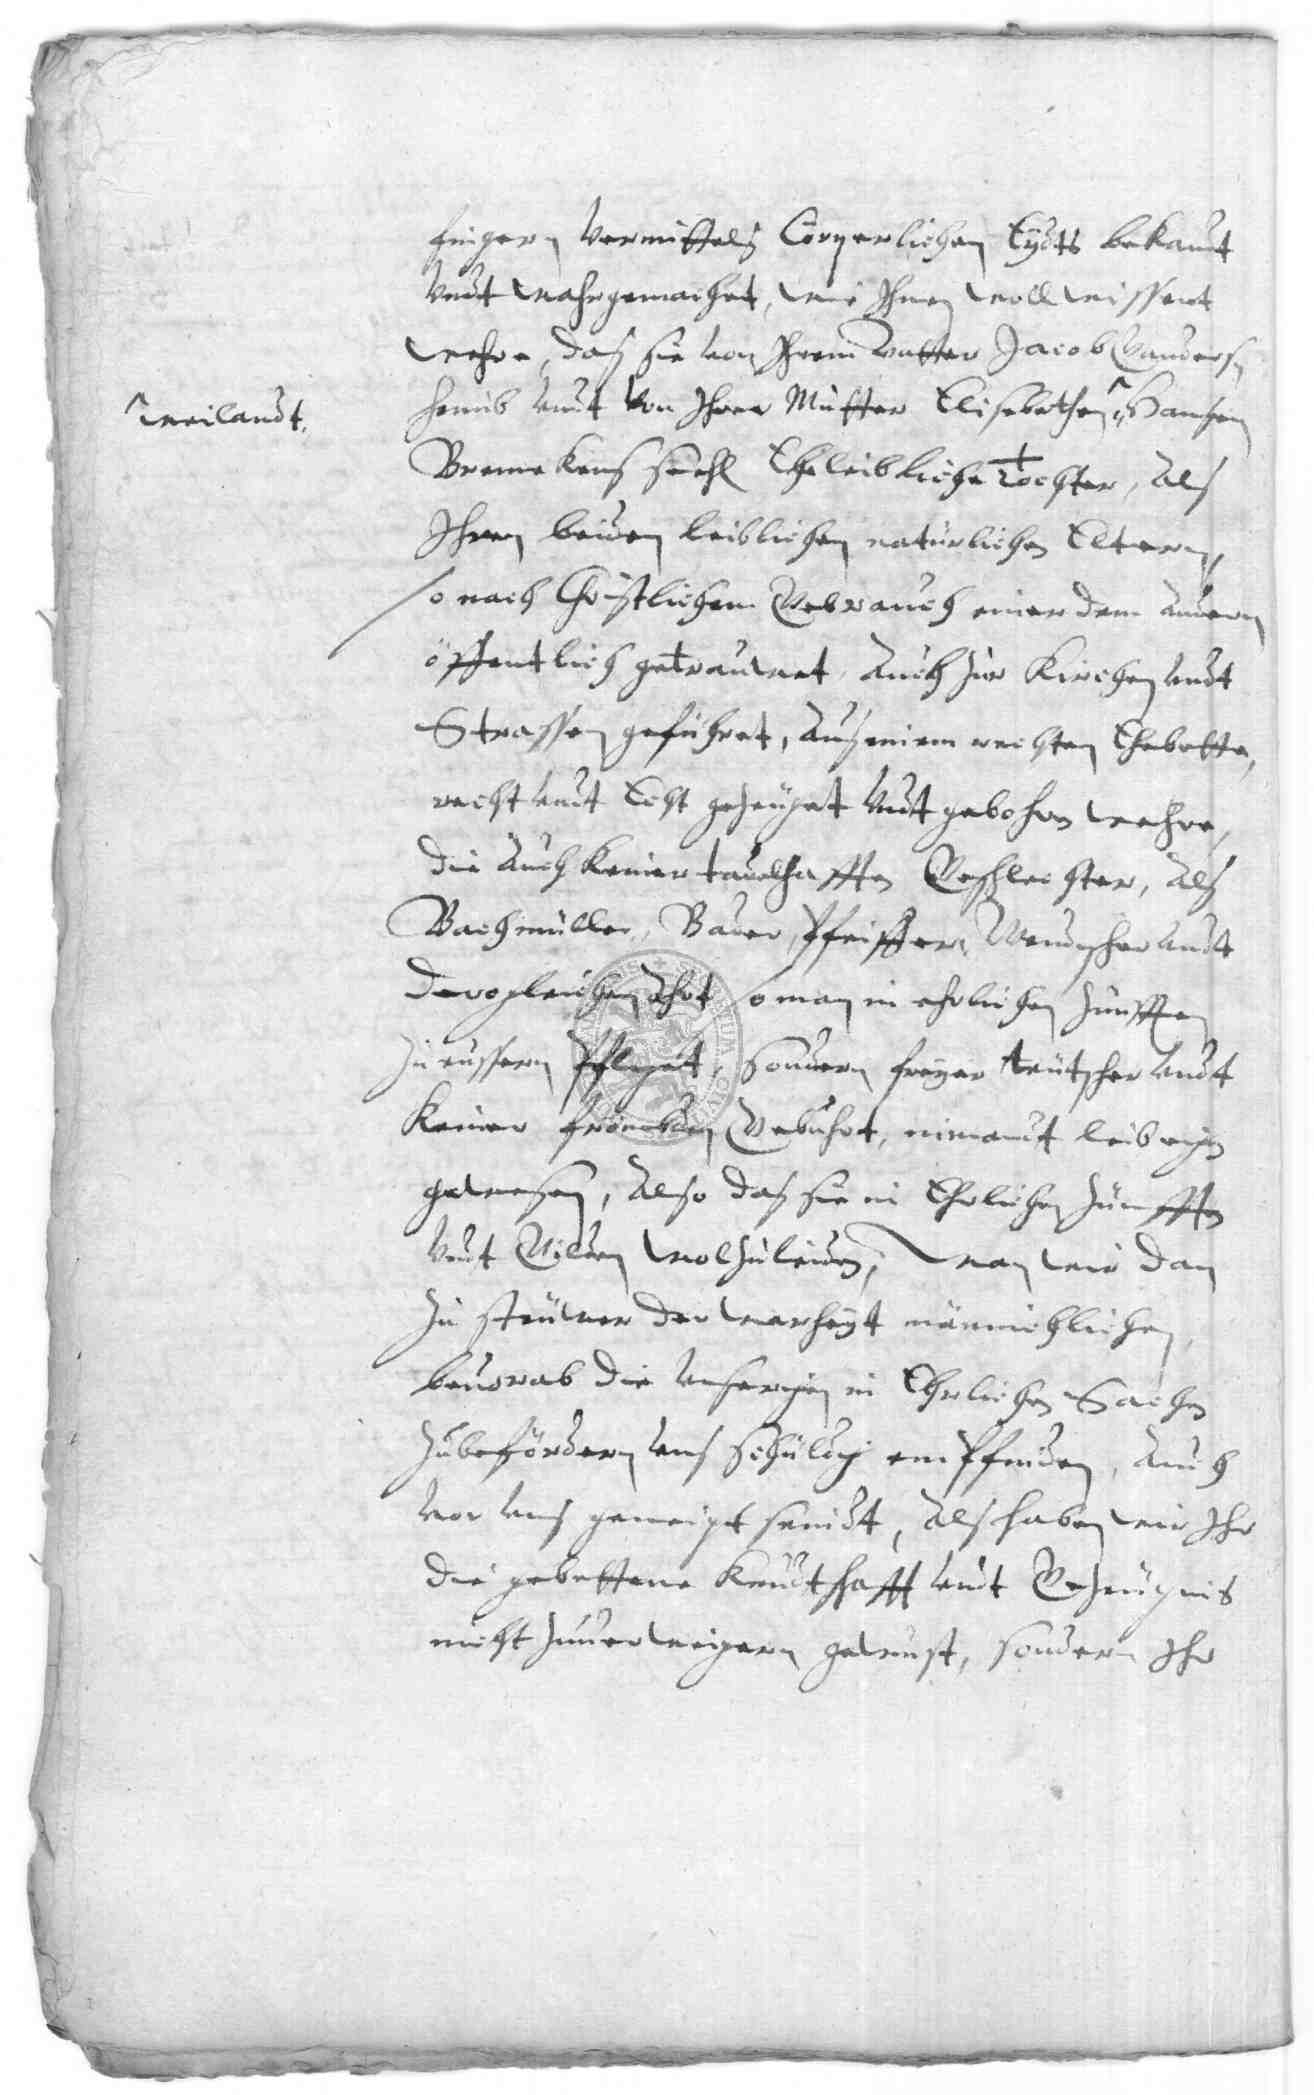 fingern Vermittelß Cörperlichen Eydts bekant
Vndt wahrgemachet, wie Ihnen woll wissent
wehre, daß sie von Ihrem Vatter Jacob Ganders-
heimb vndt von Ihrer Mutter Elisebethen, Hansen
weilandt,
Bremekens seehl Eheleibliche Tochter, als
Ihren beiden leiblichen natürlichen Eltern,
so nach Christlichem Gebrauch einer dem Andern
öffentlich getrauwet, Auch zur Kirchen vndt
Strassen geführet, Auß einem rechten Ehebette,
recht vndt Echt gezeuget Vndt gebohren wehre,
die Auch keiner tauelhafften Geschlechter, Alß
Bachmüller, Bader, Pfeiffer, Wendischer vndt
dergleichen Ahrt so man in ehrlichen Zünfften
zu eussern Pfleget, Sondern freyer teutscher vndt
keiner frömbden Gebuhrt, nimandt leib eigen
gewesen, Also daß sie in Ehrlichen Zünfften
Vndt Gilden wol zu leiden, Wan wir dan
zu steuwer der warheyt männichlichen,
beuorab die vnserigen in Ehrlichen Sachen
zubefördern vns schuldig empfinden, Auch
vor vns geneigt seindt, Alß haben wir Ihr
die gebettene Kundtschafft vndt Gezeugnis
nicht zuuerweigern gewust, sondern Ihr